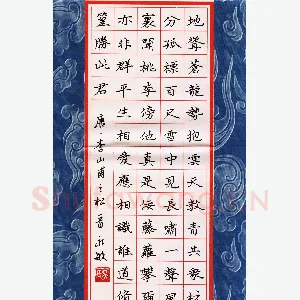 地聳蒼龍勢抱雲天教青共衆材
分孤標百尺雪中見長嘯一聲風
裏聞桃李傍他真是佞藤蘿攀爾
亦非群平生相愛應相識誰道脩
篁勝此君
唐李山甫之松